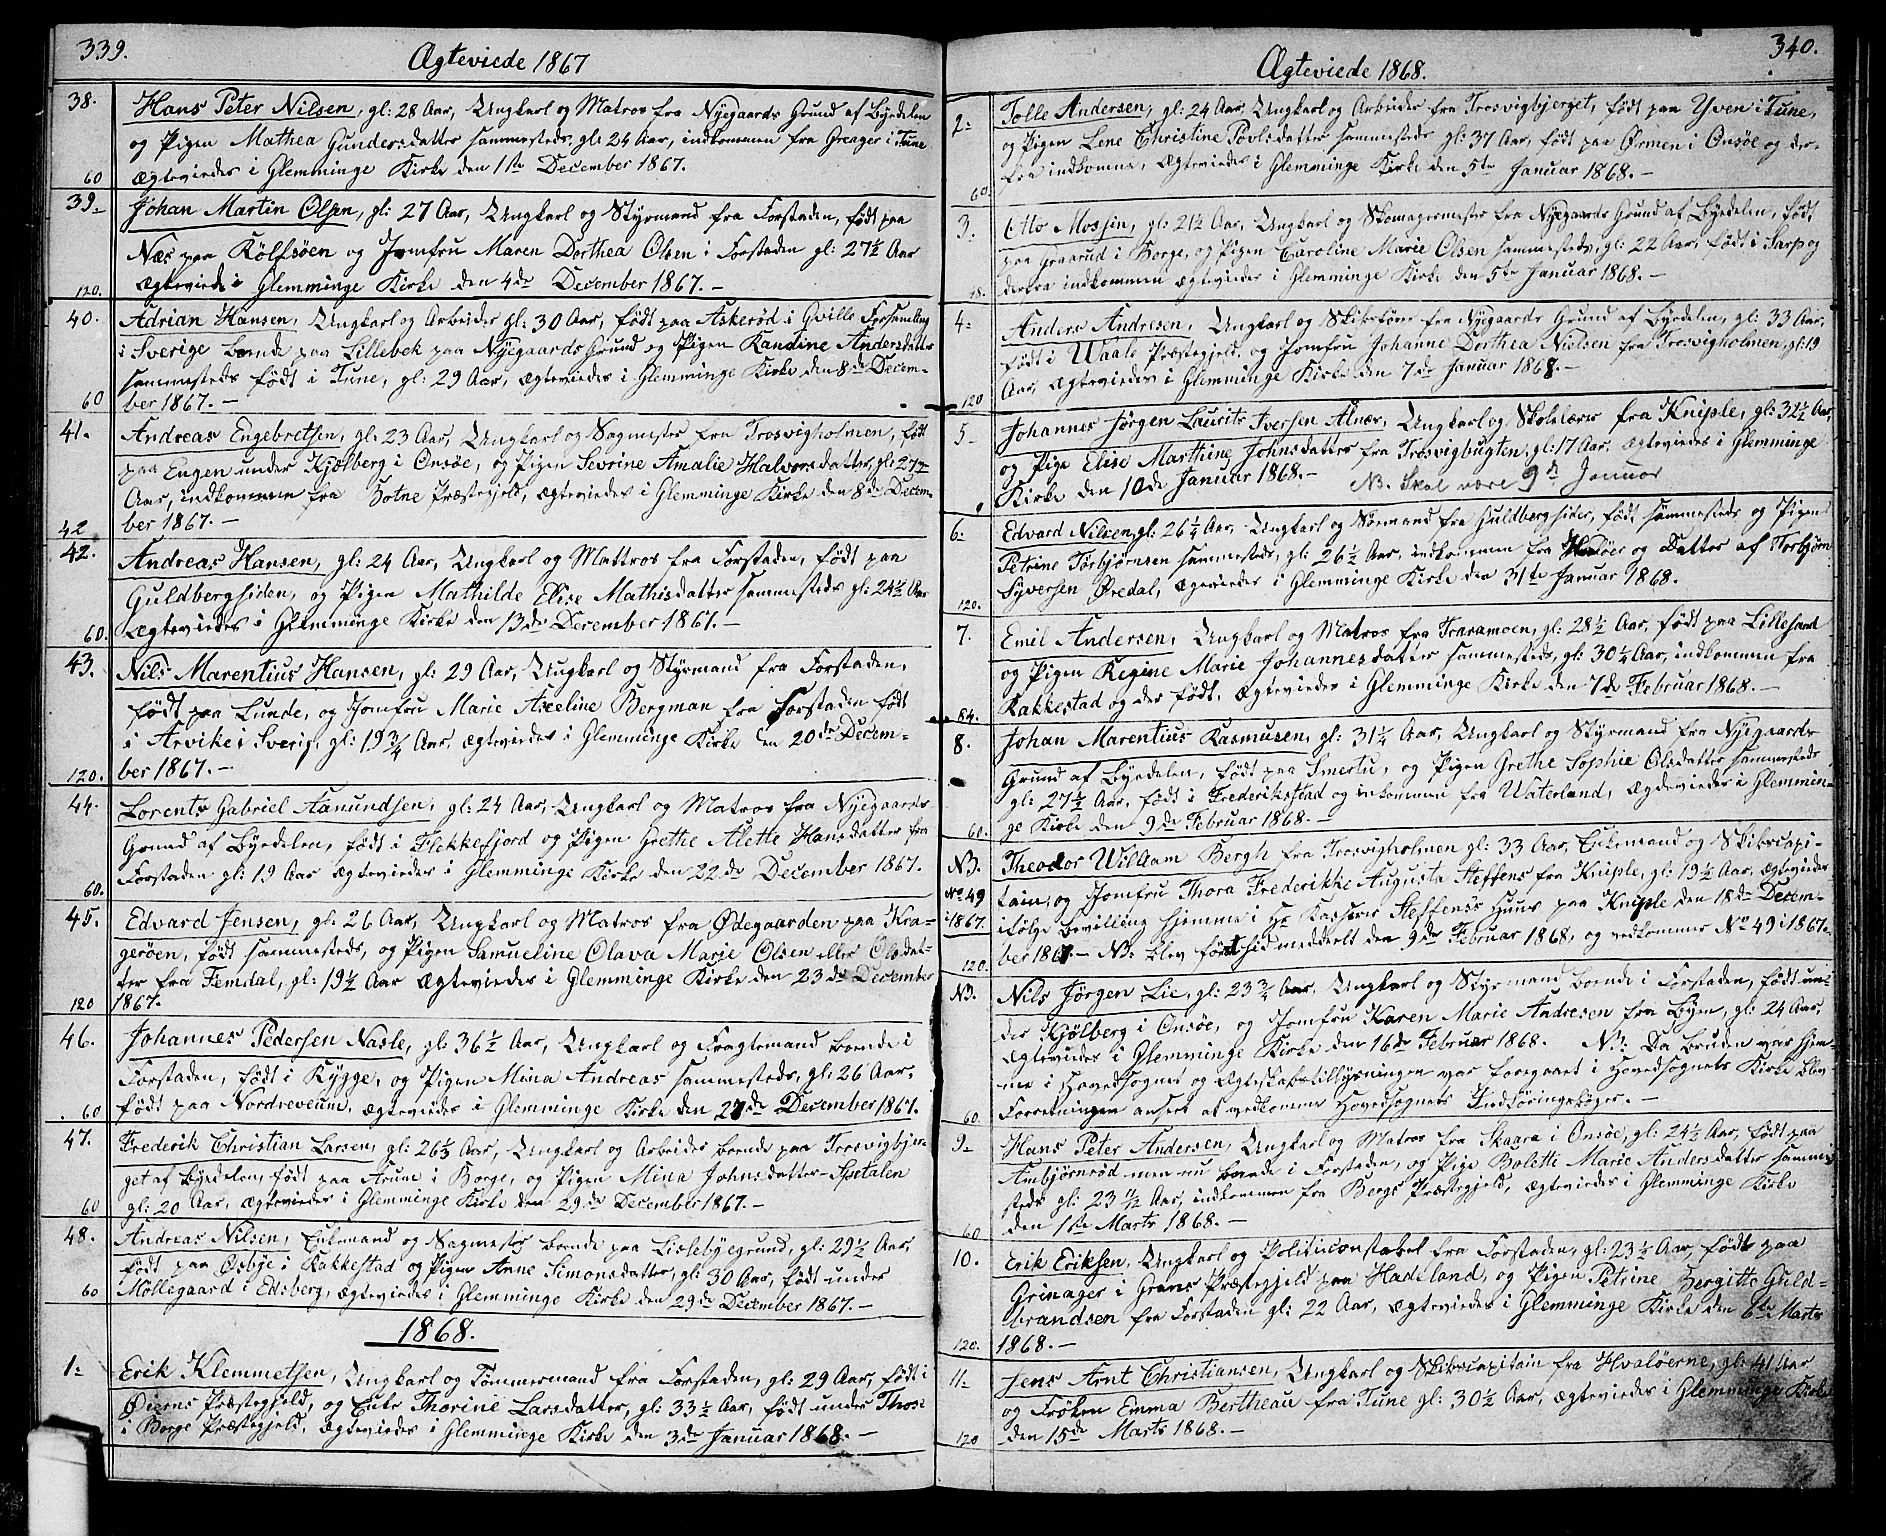 339.
Ægteviede 1867
38. Hans Peter Nilsen, gl: 28 Aar, Ungkarl og Matros fra Nyegaards Grund af Byedelen
og Pigen Mathea Gundersdatter sammesteds, gl: 24 Aar, indkommen fra Greager i Tune
60 Ægteviedes i Glemminge Kirke den 1ste December 1867.
39. Johan Martin Olsen, gl: 27 Aar, Ungkarl og Styrmand fra Forstaden, født paa
Næs paa Rölfsöen og Jomfru Maren Dorthea Olsen i Forstaden gl: 27½ Aar
120. Ægteviede i Glemminge Kirke den 4de December 1867. –
40. Adrian Hansen, Ungkarl og Arbeider gl: 30 Aar, født paa Askeröd i Qville Forsamling
i Sverige boende paa Lillebek paa Nyegaards Grund og Pigen Randine Andersdatter
sammesteds født i Tune, gl: 29 Aar, Ægteviedes i Glemminge Kirke den 8de Decem-
60 ber 1867. –
41. Andreas Engebretsen, gl: 23 Aar, Ungkarl og Sagmester fra Trosvigholmen, født
paa Engen under Kjølberg i Onsøe, og Pigen Sevrine Amalie Halvorsdatter, gl: 27
Aar, indkommen fra Sotne Præstegjeld, Ægteviedes i Glemminge Kirke den 8de Decem-
42 ber 1867. –
42. Andreas Hansen, gl: 24 Aar, Ungkarl og Mattros fra Forstaden, født paa
Guldbergsiden, og Pigen Mathilde Elise Mathisdatter sammesteds gl: 24½ Aar
60. Ægteviedes i Glemminge Kirke den 13de December 1867. –
43. Nils Marentius Hansen, gl: 29 Aar, Ungkarl og Styrmand fra Forstaden,
født paa Lunde, og Jomfru Marie Axeline Bergman fra Forstaden født
i Arvike i Sverig, gl: 19¾ Aar, Ægteviedes i Glemminge Kirke den 20de Decem-
120. ber 1867. –
44. Lorents Gabriel Aanundsen, gl: 24 Aar, Ungkarl og Matros fra Nyegaards
Grund af Byedelen, født i Flekkefjord og Pigen Grethe Alette Hansdatter, fra
60. Forstaden gl: 19 Aar Ægteviedes i Glemminge Kirke den 22de December 1867.
45. Edvard Jensen, gl: 26 Aar, Ungkarl og Matros fra Ødegaarden paa Kra-
geröen, født sammesteds, og Pigen Samueline Olava Marie Olsen eller Olsdat-
ter fra Femdal, gl: 19½ Aar Ægteviedes i Glemminge Kirke den 23de December
120 1867.
46. Johannes Pedersen Nasle, gl: 36½ Aar, Ungkarl og Fragtemand boende i
Forstaden, født i Rygge, og Pigen Mina Andreas sammesteds, gl: 26 Aar,
60 født paa Nordreveum, Ægteviedes i Glemminge Kirke den 27de December 1867.
47. Frederik Christian Larsen, gl: 26½ Aar, Ungkarl og Arbeider boende paa Trosvigbjer-
get af Byedelen, født paa Arum i Borge, og Pigen Mina Johnsdatter Spetalen
60 gl: 20 Aar, Ægteviedes i Glemminge Kirke den 29de December 1867. –
48. Andreas Nilsen, Enkemand og Sagmester boende paa Lislebyegrund, gl: 29½ Aar,
født paa Osbye i Rakkestad og Pigen Anne Simonsdatter, gl: 30 Aar, født under
60 Möllegaard i Edsberg, Ægteviedes i Glemminge Kirke den 29de December 1867. –
1868.
1. Erik Klemmetsen, Ungkarl og Tömmermand fra Forstaden, gl: 29 Aar, født i
Øierns Præstegjeld, og Enke Thorine Larsdatter, gl: 33½ Aar, født under Those
i Borge Præstegjeld, Ægteviedes i Glemminge Kirke den 3de Januar 1868. –
340.
Ægteviede 1868.
2. Tolle Andersen, gl: 24 Aar, Ungkarl og Arbeider fra Trosvigbjerget, født paa Yven i Tune,
og Pigen Lene Christine Povlsdatter sammesteds gl: 37 Aar, født paa Ørmen i Onsøe og der-
60. fra indkomne, Ægteviedes i Glemminge Kirke den 5te Januar 1868. –
3. Otto Mosjin, gl: 21½ Aar, Ungkarl og Skomagermester fra Nyegaards Grund af Byedelen, født
paa Graarud i Borge, og Pigen Caroline Marie Olsen sammesteds, gl: 22 Aar, født i Sarp og
48. derfra indkommen Ægteviedes i Glemminge Kirke den 5te Januar 1868. –
4. Anders Andresen, Ungkarl og Skibsfører fra Nyegaards Grund af Byedelen, gl: 33 Aar,
født i Waale Præstegjeld, og Jomfru Johanne Dorthea Nielsen fra Trosvigholmen, gl: 19
120 Aar, Ægteviedes i Glemminge Kirke den 7de Januar 1868. –
5 Johannes Jörgen Laurits Iversen Alnæs, Ungkarl og Skolelærer fra Kniple, gl: 31½ Aar,
og Pige Elise Marthine Johnsdatter fra Trosvigbugten, gl: 17 Aar, Ægteviedes i Glemminge
Kirke den 10de Januar 1868. – NB. Skal være 9de Januar
6. Edvard Nilsen, gl: 26¼ Aar, Ungkarl og Sømand fra Guldbergsiden, født sammesteds og Pigen
Petrine Torbjørnsen sammesteds, gl: 26½ Aar, indkommen fra Hvaløer og Datter af Torbjørn
120. Syversen Øredal, Ægteviedes i Glemminge Kirke den 31te Januar 1868.
7. Emil Andersen, Ungkarl og Matros fra Traramoen, gl: 28½ Aar, født paa Lillefjord
og Pigen Regine Marie Johannesdatter sammesteds, gl: 30¼ Aar, indkommen fra
84. Rakkestad og der født, Ægteviedes i Glemminge Kirke den 7de Februar 1868. –
8. Johan Marentius Rasmusen, gl: 31¼ Aar, Ungkarl og Styrmand fra Nyegaards
Grund af Byedelen, født paa Smertu, og Pigen Grethe Sophie Olsdatter sammesteds
gl: 27½ Aar, født i Frederiksstad og inkommen fra Waterland, Ægteviedes i Glemmin-
60. ge Kirke den 9de Februar 1868. –
NB. Theodor William Bergh fra Trosvigholmen gl: 33 Aar, Enkemand og Skibscapi-
No 49 tain, og Jomfru Thora Frederikke Augusta Steffens fra Kniple, gl: 19½ Aar, Ægteviedes
1867. ifølge Bevilling hjemme i Hr Kasserer Steffens's Huus paa Kniple den 18de Decem-
120. ber 1867. – NB: blev først hid meddelt den 9de Februar 1868, og vedkommer No 49 i 1867.
NB. Nils Jörgen Lie, gl: 23¾ Aar, Ungkarl og Styrmand boende i Forstaden, født un-
der Kjølberg i Onsøe, og Jomfru Karen Marie Andresen fra Byen, gl: 24 Aar,
Ægteviedes i Glemminge Kirke den 16de Februar 1868. NB: Da Bruden var hjem-
me i Hovedsognet og Ægteskabstillysningen var foregaaet i Hovedsognets Kirke blev
60. Forretningen anseet at vedkomme Hovedsognets Indføringsbøger. –
9. Hans Peter Andersen, Ungkarl og Matros fra Skaara i Onsøe, gl: 24½ Aar, født paa
Ambjørnrød men nu boende i Forstaden, og Pige Bolette Marie Andersdatter samme-
steds gl: 23 11/12 Aar, indkommen fra Bergs Præstegjeld, Ægteviedes i Glemminge Kirke
60 den 1ste Marts 1868. –
10. Erik Eriksen, Ungkarl og Politiconstabel fra Forstaden, gl: 23½ Aar, født paa
Grinager i Grans Præstegjeld paa Hadeland, og Pigen Petrine Bergitte Guld-
brandsen fra Forstaden gl: 22 Aar, Ægteviedes i Glemminge Kirke den 6te Marts
120. 1868. –
11. Jens Arnt Christiansen, Ungkarl og Skibscapitain fra Hvaløerne, gl: 41 Aar
og Frøken Emma Bertheau fra Tune gl: 30½ Aar, Ægteviedes i Glemminge Kirke
120 den 15de Marts 1868. –